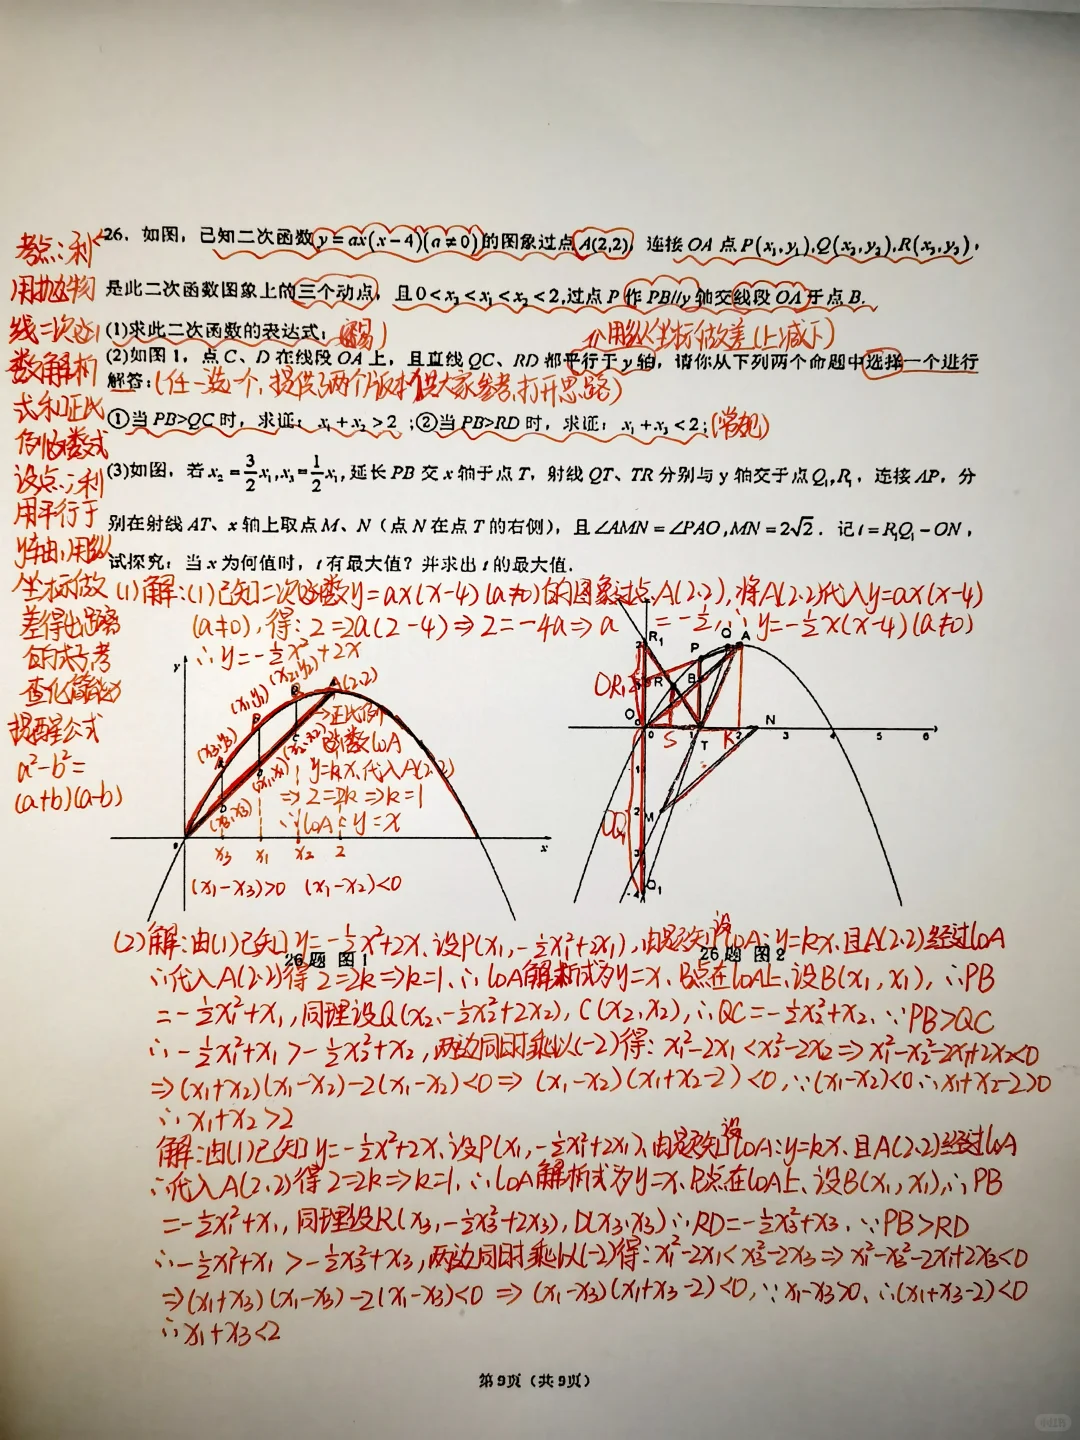 26. 如图，已知二次函数 y=ax(x-4)(a≠0)的图象过点 A(2,2)，连接 OA 点 P(x₁,y₁),Q(x₂,y₂),R(x₃,y₃)，
是此二次函数图象上的三个动点，且 0<x₃<x₁<x₂<2,过点 P 作 PB//y 轴交线段 OA 于点 B.
(1)求此二次函数的表达式；
(2)如图 1，点 C、D 在线段 OA 上，且直线 QC、RD 都平行于 y 轴，请你从下列两个命题中选择一个进行
解答：(任一选一个，提供了两个版本供大家参考，打开思路)
①当 PB>QC 时，求证：x₁+x₂>2；②当 PB>RD 时，求证：x₁+x₃<2；(常规)
(3)如图，若 x₂=3/2x₁,x₃=1/2x₁,延长 PB 交 x 轴于点 T，射线 QT、TR 分别与 y 轴交于点 Q₁,R₁，连接 AP，分
别在射线 AT、x 轴上取点 M、N（点 N 在点 T 的右侧），且∠AMN=∠PAO,MN=2√2．记 t=R₁Q₁-ON，
试探究：当 x 为何值时，t 有最大值？并求出 t 的最大值.
考点：利
用抛物
线二次函
数解析
式和正比
例函数式
设点；利
用平行于
y轴，用纵
坐标做
差得出距离
的式子，考
查化简能力
提醒公式
a²-b²=
(a+b)(a-b)
用纵坐标做差(上减下)
(1)解：(1)已知二次函数y=ax(x-4)(a≠0)的图象过点A(2,2)，将A(2,2)代入y=ax(x-4)
(a≠0)，得：2=2a(2-4)⇒2=-4a⇒a=-½，∴y=-½x(x-4)(a≠0)
∴y=-½x²+2x
y
(x₁,y₁)
(x₂,y₂)
A(2,2)
(x₃,y₃)
→正比例
函数lOA
y=kx，代入A(2,2)
⇒2=2k⇒k=1
∴lOA：y=x
x₃ x₁ x₂ 2 x
(x₁-x₃)>0 (x₁-x₂)<0
R₁ P Q A
R B
OR₁
O S T K N
1 2 3 4 5 6
M
OQ₁
Q₁
26题 图1
26题 图2
(2)解：由(1)已知y=-½x²+2x，设P(x₁,-½x₁²+2x₁)，由题知设lOA：y=kx，且A(2,2)经过lOA
∴代入A(2,2)得2=2k⇒k=1，∴lOA解析式为y=x，B点在lOA上，设B(x₁,x₁)，∴PB
=-½x₁²+x₁，同理设Q(x₂,-½x₂²+2x₂)，C(x₂,x₂)，∴QC=-½x₂²+x₂，∵PB>QC
∴-½x₁²+x₁>-½x₂²+x₂，两边同时乘以(-2)得：x₁²-2x₁<x₂²-2x₂⇒x₁²-x₂²-2x₁+2x₂<0
⇒(x₁+x₂)(x₁-x₂)-2(x₁-x₂)<0⇒(x₁-x₂)(x₁+x₂-2)<0，∵(x₁-x₂)<0∴x₁+x₂-2>0
∴x₁+x₂>2
解：由(1)已知y=-½x²+2x，设P(x₁,-½x₁²+2x₁)，由题知设lOA：y=kx，且A(2,2)经过lOA
∴代入A(2,2)得2=2k⇒k=1，∴lOA解析式为y=x，B点在lOA上，设B(x₁,x₁)，∴PB
=-½x₁²+x₁，同理设R(x₃,-½x₃²+2x₃)，D(x₃,x₃)∴RD=-½x₃²+x₃，∵PB>RD
∴-½x₁²+x₁>-½x₃²+x₃，两边同时乘以(-2)得：x₁²-2x₁<x₃²-2x₃⇒x₁²-x₃²-2x₁+2x₃<0
⇒(x₁+x₃)(x₁-x₃)-2(x₁-x₃)<0⇒(x₁-x₃)(x₁+x₃-2)<0，∵x₁-x₃>0，∴(x₁+x₃-2)<0
∴x₁+x₃<2
第9页（共9页）